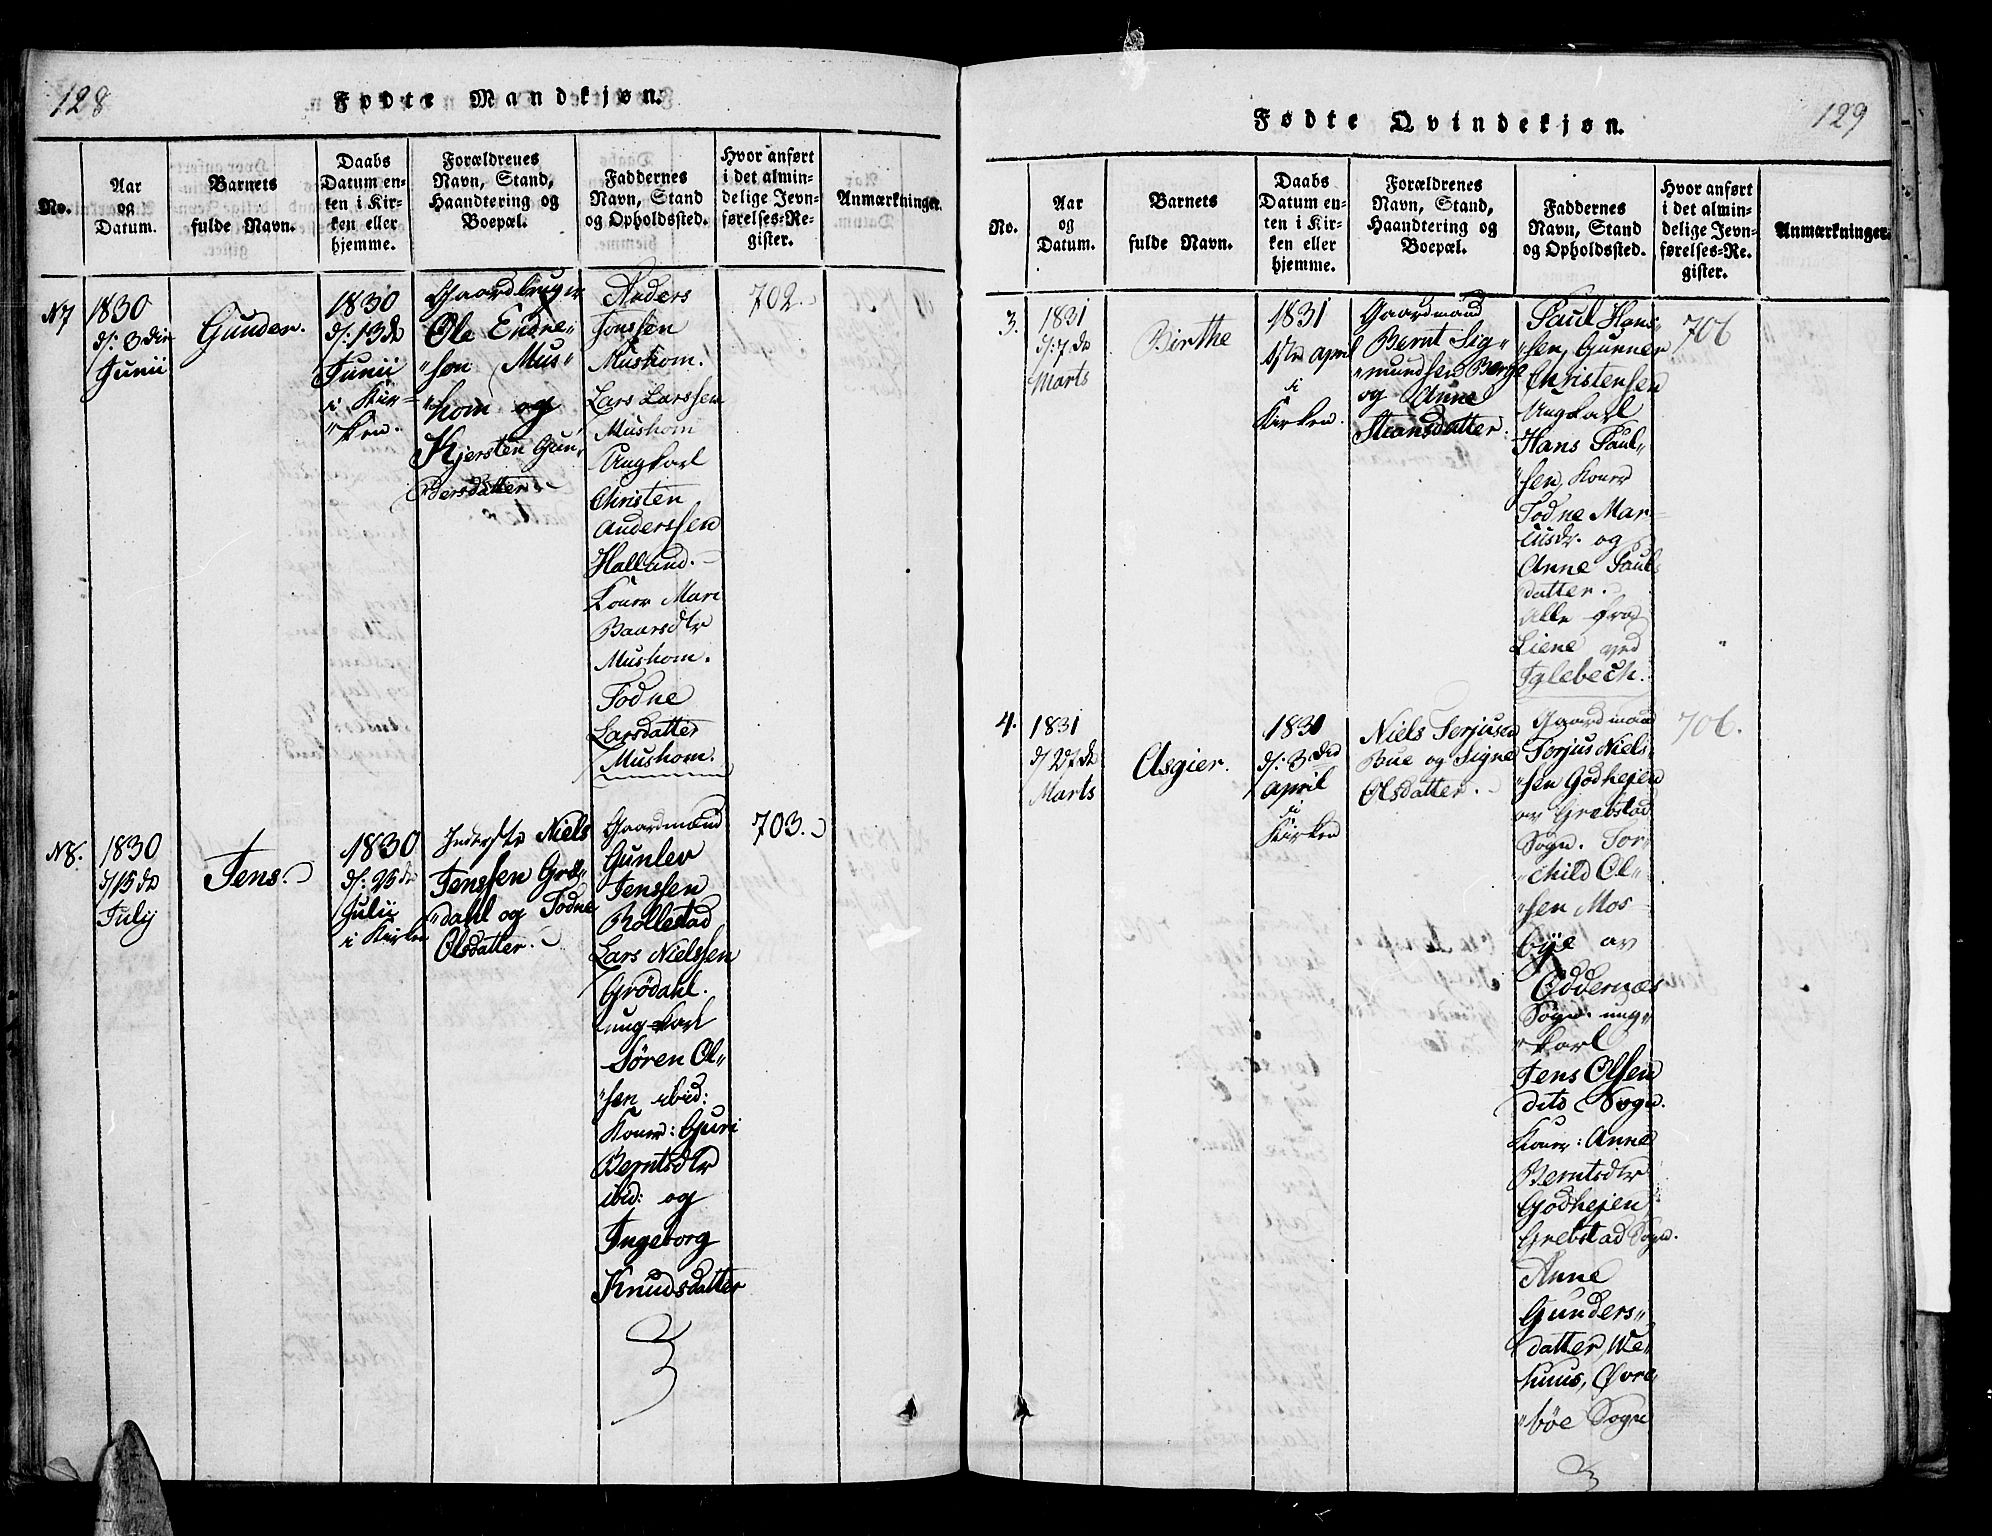 128
Fødte Mandkjøn.
No.
Aar
og
Datum.
Barnets
fulde Navn.
Daabs
Datum en-
ten i Kir-
ken eller
hjemme.
Forældrenes
Navn, Stand,
Haandtering og
Boepæl.
Faddernes
Navn, Stand
og Opholdssted.
Hvor anført
i det almin-
delige Jevn-
førelses-Re-
gister.
Anmærkninger.
N7
1830
d: 3die
Junii
Gunder.
1830
d: 13de
Junii
i Kir-
"ken.
Gaardbruger
Ole Endre"
"sen Mus"
"hom og
Kjersten Gun"
"dersdatter
Anders
Jonssen
Mushom.
Lars Larssen
Mushom
Ungkarl
Christen
Anderssen
Halland.
Koner Mari
Baarsdtr
Mushom.
Todne
Larsdatter
Mushom.
702.
N8.
1830
d/15de
July
Jens.
1830
d: 25de
Julii
i Kirken
Inderste Niels
Jenssen Grö"
"dahl og Todne
Olsdatter.
Gaardmænd
Gunlev
Jenssen
Rollestad
Lars Nielssen
Grödahl.
ungkarl
Sören Ol"
"sen ibid:
Koner: Guri
Berntsdtr
ibid: og
Ingeborg
Knudsdatter
703.
129
Fødte Qvindekjøn.
No.
Aar
og
Datum.
Barnets
fulde Navn.
Daabs
Datum en-
ten i Kir-
ken eller
hjemme.
Forældrenes
Navn, Stand,
Haandtering og
Boepæl.
Faddernes
Navn, Stand
og Opholdssted.
Hvor anført
i det almin-
delige Jevn-
førelses-Re-
gister.
Anmærkninger.
3.
1831
d: 7de
Marts
Birthe
1831
1ste April
i
Kirken.
Gaardmand
Bernt Sig"
"mundsen Berge
og Anne
Stiansdatter.
Paul Hans"
"sen, Gunner
Christensen
Ungkarl
Hans Paul"
"sen, Koner
Todne Mar-
cusdr. og
Anne Pauls
datter.
Alle fra
Liene ved
Iglebech.
706
4.
1831
d/27de
Marts
Asgier.
1831
d: 3die
April
i
Kirken
Niels Terjusen
Bue og Signe
Olsdatter.
Gaardmænd
Torjus Niel"
"sen Godhejen
av Grebstad
Sogn. Tor"
"child Ol"
"sen Mos-
bye av
Oddernæs
Sogn. ung"
"karl
Jens Olsen
dito Sogn.
Koner: Anne
Berntsdtr
Godhejen
Grebstad Sogn.
Anne
Gunders"
datter We"
huus, Øvre"
"bøe Sogn
706.